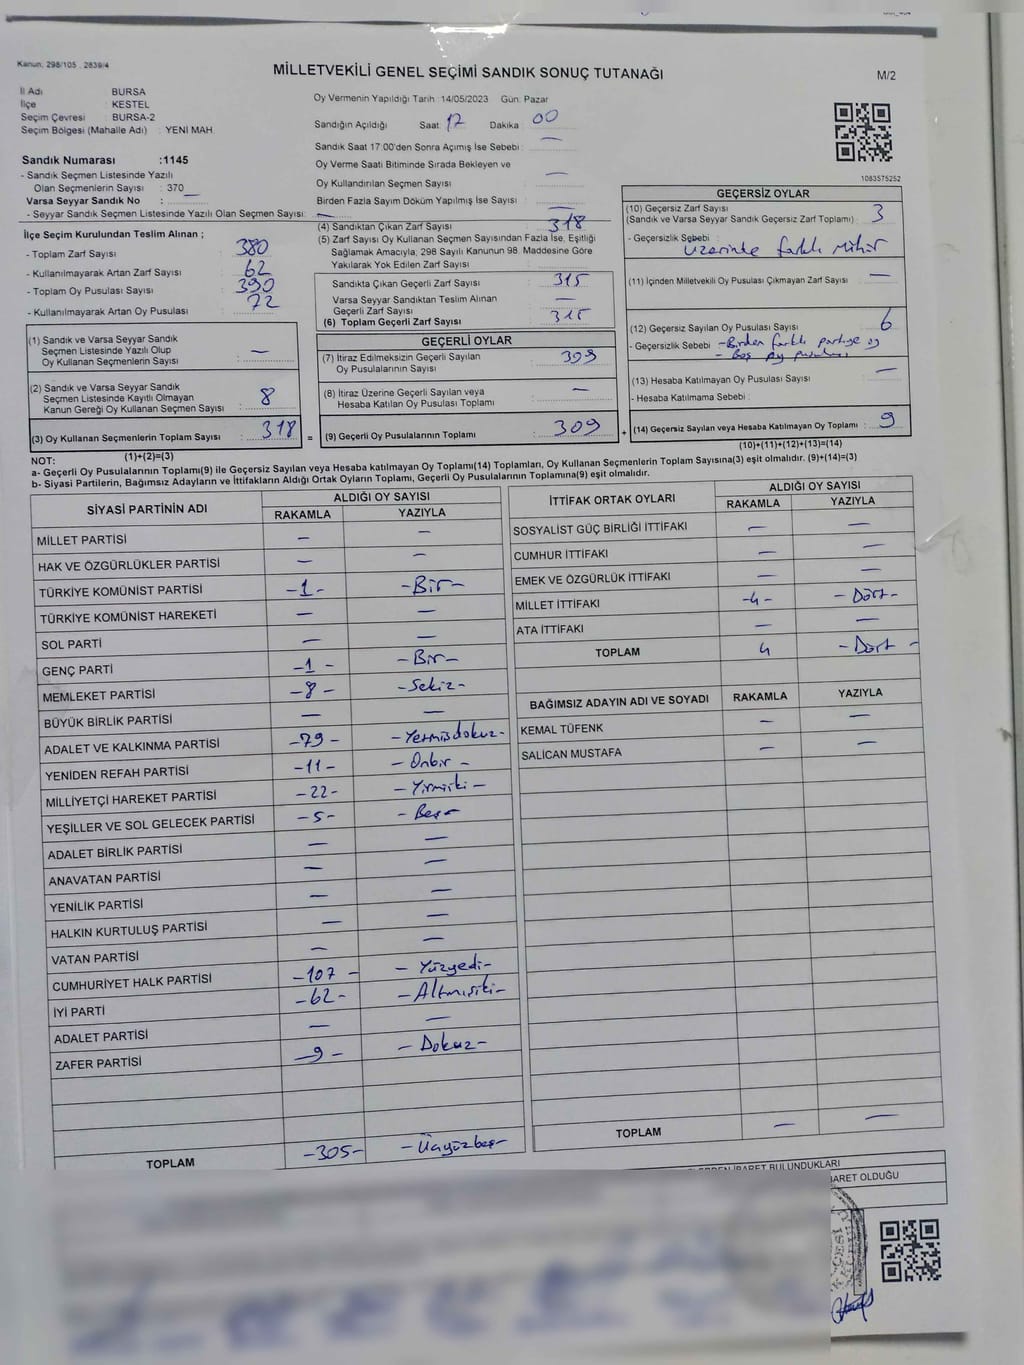 Kanun: 298/105 . 2839/4
MİLLETVEKİLİ GENEL SEÇİMİ SANDIK SONUÇ TUTANAĞI
M/2
İl Adı BURSA
İlçe : KESTEL
Seçim Çevresi : BURSA-2
Seçim Bölgesi (Mahalle Adı) : YENİ MAH.
Oy Vermenin Yapıldığı Tarih :14/05/2023 Gün: Pazar
Sandığın Açıldığı Saat 17 Dakika 00
Sandık Saat 17:00'den Sonra Açımış İse Sebebi : —
Oy Verme Saati Bitiminde Sırada Bekleyen ve
Oy Kullandırılan Seçmen Sayısı —
Birden Fazla Sayım Döküm Yapılmış İse Sayısı : —
1083575252
Sandık Numarası :1145
- Sandık Seçmen Listesinde Yazılı
Olan Seçmenlerin Sayısı : 370
Varsa Seyyar Sandık No :
- Seyyar Sandık Seçmen Listesinde Yazılı Olan Seçmen Sayısı: —
İlçe Seçim Kurulundan Teslim Alınan ;
- Toplam Zarf Sayısı : 380
- Kullanılmayarak Artan Zarf Sayısı : 62
- Toplam Oy Pusulası Sayısı : 390
- Kullanılmayarak Artan Oy Pusulası : 72
(1) Sandık ve Varsa Seyyar Sandık
Seçmen Listesinde Yazılı Olup
Oy Kullanan Seçmenlerin Sayısı : —
(2) Sandık ve Varsa Seyyar Sandık
Seçmen Listesinde Kayıtlı Olmayan
Kanun Gereği Oy Kullanan Seçmen Sayısı : 8
(3) Oy Kullanan Seçmenlerin Toplam Sayısı : 318
(1)+(2)=(3)
(4) Sandıktan Çıkan Zarf Sayısı : 318
(5) Zarf Sayısı Oy Kullanan Seçmen Sayısından Fazla İse, Eşitliği
Sağlamak Amacıyla; 298 Sayılı Kanunun 98. Maddesine Göre
Yakılarak Yok Edilen Zarf Sayısı :
Sandıkta Çıkan Geçerli Zarf Sayısı : 315
Varsa Seyyar Sandıktan Teslim Alınan
Geçerli Zarf Sayısı : —
(6) Toplam Geçerli Zarf Sayısı : 315
GEÇERLİ OYLAR
(7) İtiraz Edilmeksizin Geçerli Sayılan
Oy Pusulalarının Sayısı : 309
(8) İtiraz Üzerine Geçerli Sayılan veya
Hesaba Katılan Oy Pusulası Toplamı : —
= (9) Geçerli Oy Pusulalarının Toplamı : 309 +
GEÇERSİZ OYLAR
(10) Geçersiz Zarf Sayısı
(Sandık ve Varsa Seyyar Sandık Geçersiz Zarf Toplamı) : 3
- Geçersizlik Sebebi : üzerinde farklı mühür
(11) İçinden Milletvekili Oy Pusulası Çıkmayan Zarf Sayısı : —
(12) Geçersiz Sayılan Oy Pusulası Sayısı : 6
- Geçersizlik Sebebi : -Birden farklı partiye oy
- Boş oy pusulası
(13) Hesaba Katılmayan Oy Pusulası Sayısı : —
- Hesaba Katılmama Sebebi :
(14) Geçersiz Sayılan veya Hesaba Katılmayan Oy Toplamı : 9
(10)+(11)+(12)+(13)=(14)
NOT:
a- Geçerli Oy Pusulalarının Toplamı(9) ile Geçersiz Sayılan veya Hesaba katılmayan Oy Toplamı(14) Toplamları, Oy Kullanan Seçmenlerin Toplam Sayısına(3) eşit olmalıdır. (9)+(14)=(3)
b- Siyasi Partilerin, Bağımsız Adayların ve İttifakların Aldığı Ortak Oyların Toplamı, Geçerli Oy Pusulalarının Toplamına(9) eşit olmalıdır.
SİYASİ PARTİNİN ADI ALDIĞI OY SAYISI
RAKAMLA YAZIYLA
MİLLET PARTİSİ — —
HAK VE ÖZGÜRLÜKLER PARTİSİ — —
TÜRKİYE KOMÜNİST PARTİSİ -1- -Bir-
TÜRKİYE KOMÜNİST HAREKETİ — —
SOL PARTİ — —
GENÇ PARTİ -1- -Bir-
MEMLEKET PARTİSİ -8- -Sekiz-
BÜYÜK BİRLİK PARTİSİ — —
ADALET VE KALKINMA PARTİSİ -79- -Yetmişdokuz-
YENİDEN REFAH PARTİSİ -11- -Onbir-
MİLLİYETÇİ HAREKET PARTİSİ -22- -Yirmiiki-
YEŞİLLER VE SOL GELECEK PARTİSİ -5- -Beş-
ADALET BİRLİK PARTİSİ — —
ANAVATAN PARTİSİ — —
YENİLİK PARTİSİ — —
HALKIN KURTULUŞ PARTİSİ — —
VATAN PARTİSİ — —
CUMHURİYET HALK PARTİSİ -107- -Yüzyedi-
İYİ PARTİ -62- -Altmışiki-
ADALET PARTİSİ — —
ZAFER PARTİSİ -9- -Dokuz-
TOPLAM -305- -Üçyüzbeş-
İTTİFAK ORTAK OYLARI ALDIĞI OY SAYISI
RAKAMLA YAZIYLA
SOSYALİST GÜÇ BİRLİĞİ İTTİFAKI — —
CUMHUR İTTİFAKI — —
EMEK VE ÖZGÜRLÜK İTTİFAKI — —
MİLLET İTTİFAKI -4- -Dört-
ATA İTTİFAKI — —
TOPLAM 4 -Dört-
BAĞIMSIZ ADAYIN ADI VE SOYADI RAKAMLA YAZIYLA
KEMAL TÜFENK — —
SALİCAN MUSTAFA — —
TOPLAM — —
BULUNDUKLARI
OLDUĞU